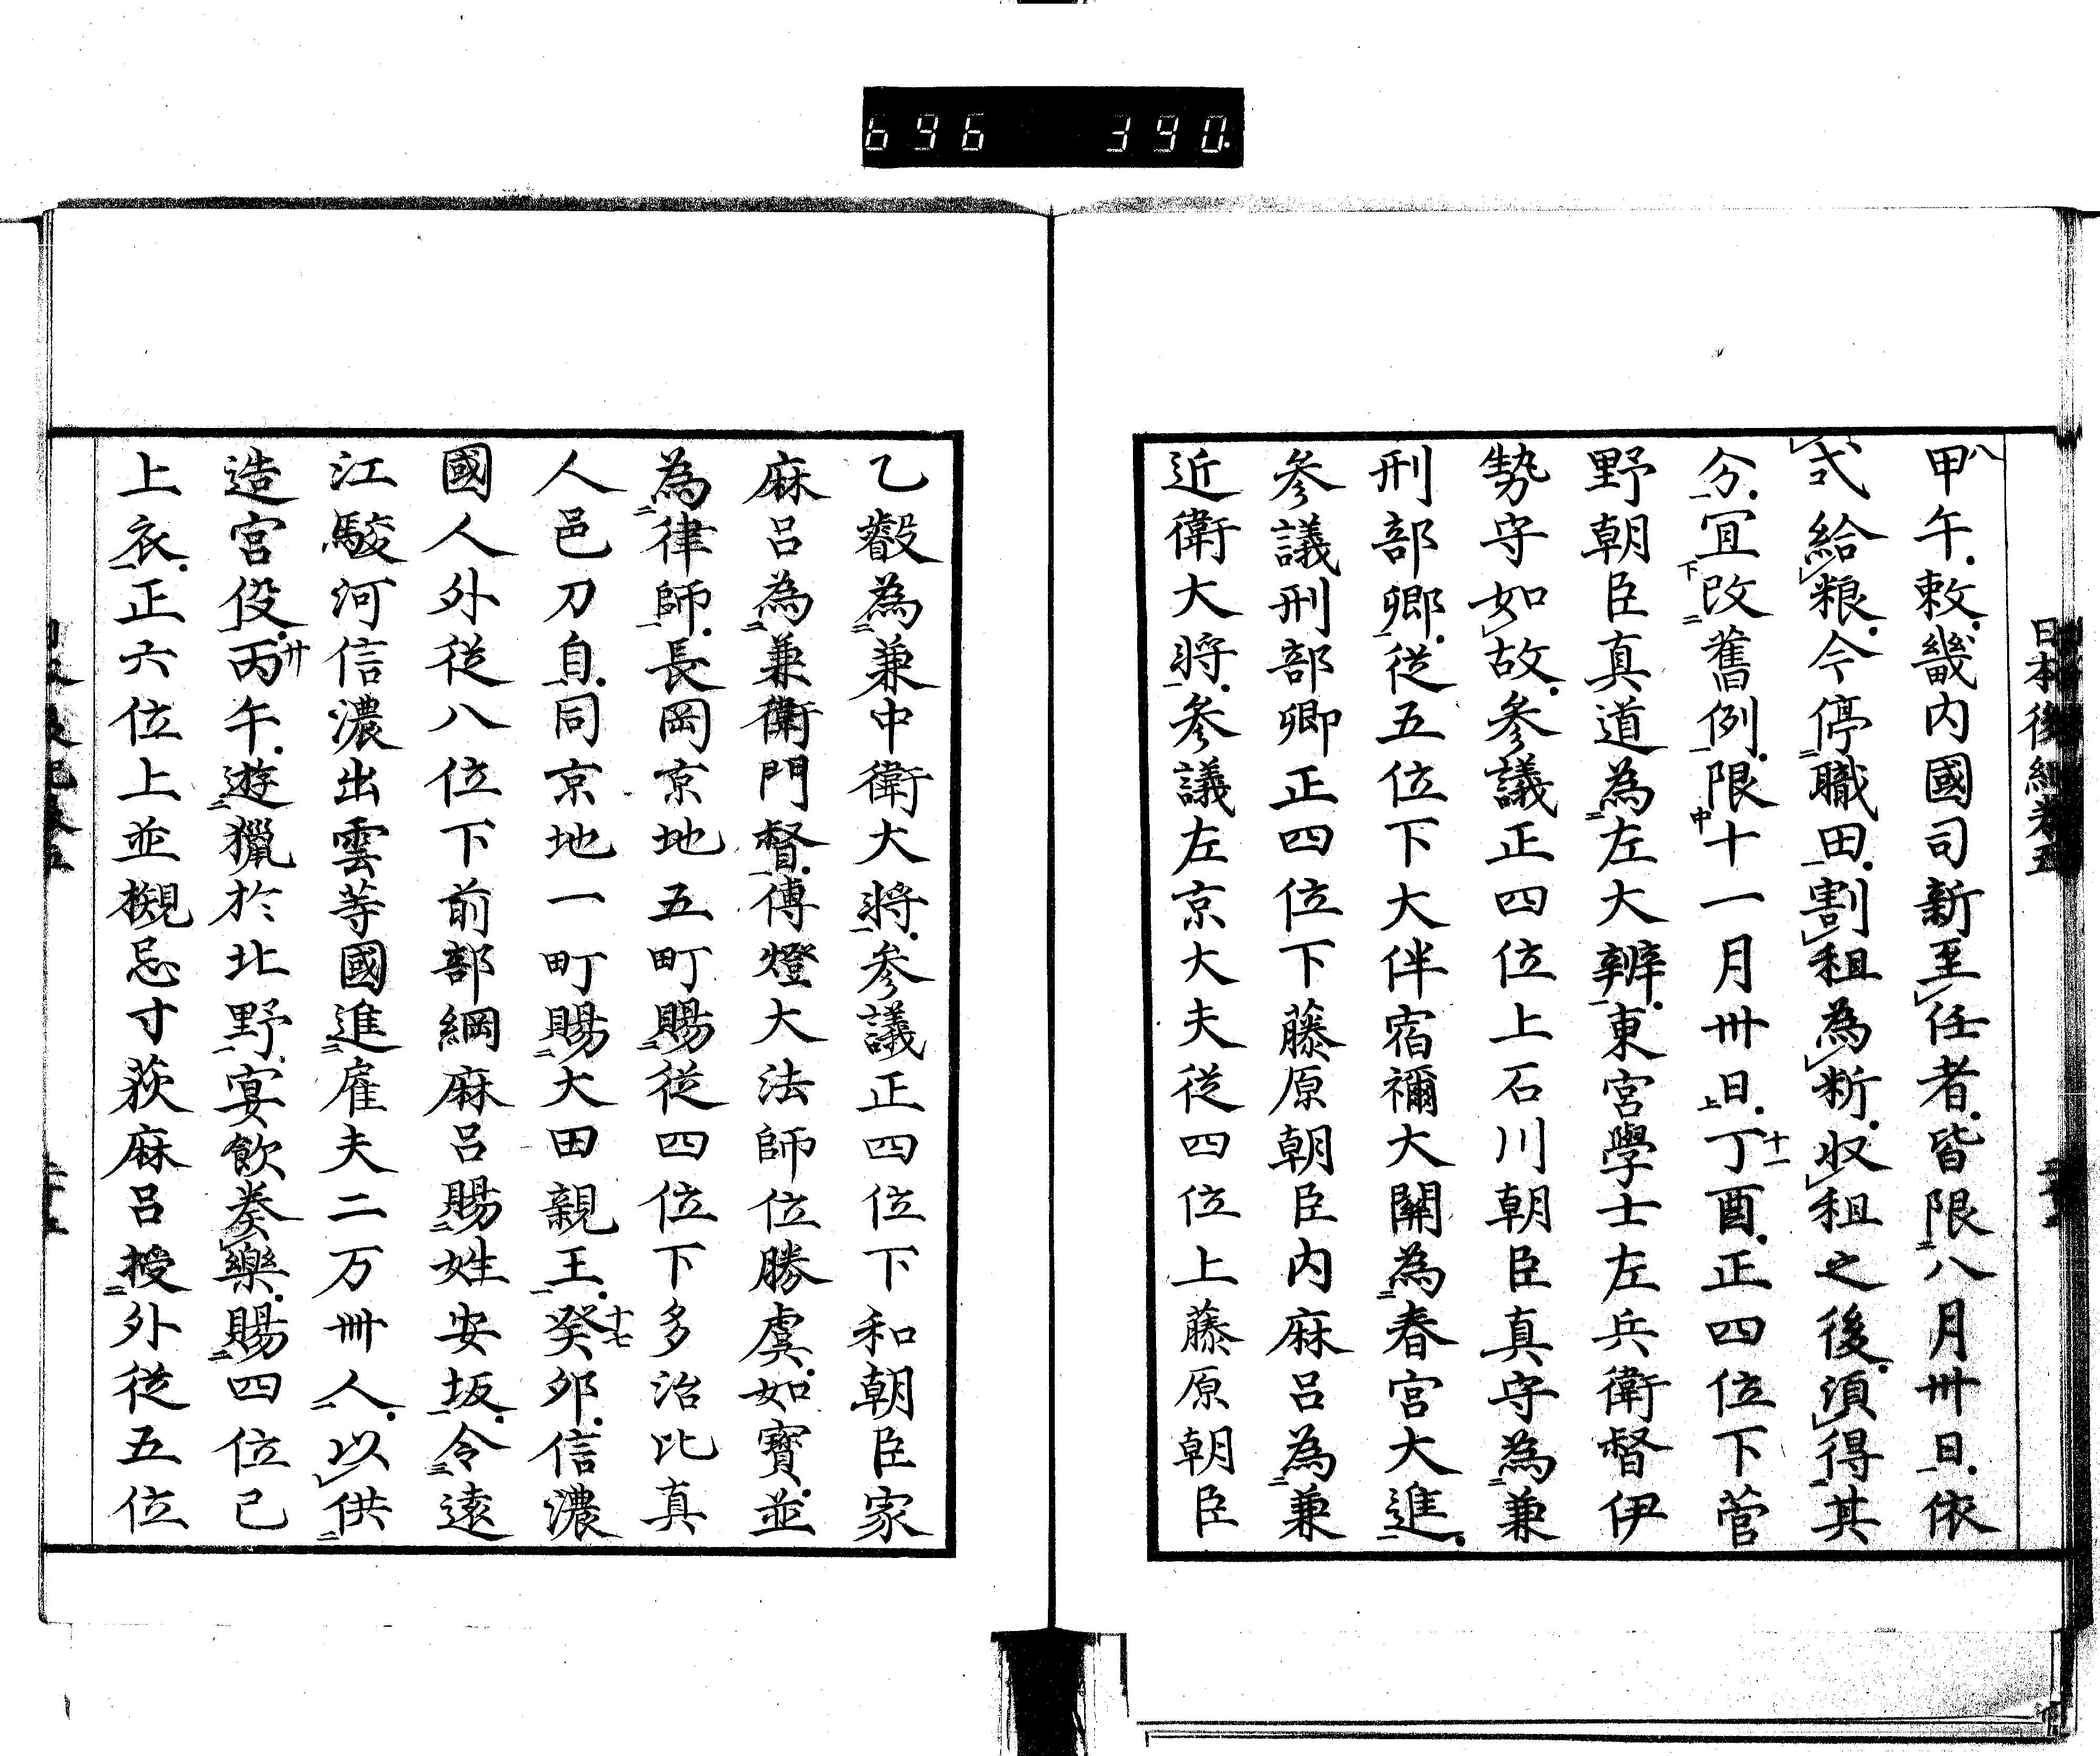 696 390.
日本後紀卷五
甲午八敕畿内國司新至任者皆限八月卅日依
式給粮今停職田割租為析收租之後須得其
分宜改舊例限十一月卅日丁酉十一正四位下菅
野朝臣真道為左大辨東宮學士左兵衛督伊
勢守如故參議正四位上石川朝臣真守為兼
刑部卿從五位下大伴宿禰大關為春宮大進
參議刑部卿正四位下藤原朝臣内麻呂為兼
近衛大將參議左京大夫從四位上藤原朝臣
乙叡為兼中衛大將參議正四位下和朝臣家
麻呂為兼衛門督傳燈大法師位勝虞如寳並
為律師長岡京地五町賜從四位下多治比真
人邑刀自同京地一町賜大田親王癸卯十七信濃
國人外從八位下前部綱麻呂賜姓安坂令遠
江駿河信濃出雲等國進雇夫二万卌人以供
造宮役丙午廿遊獵於北野宴飲奏樂賜四位已
上衣正六位上並槻忌寸荻麻呂授外從五位